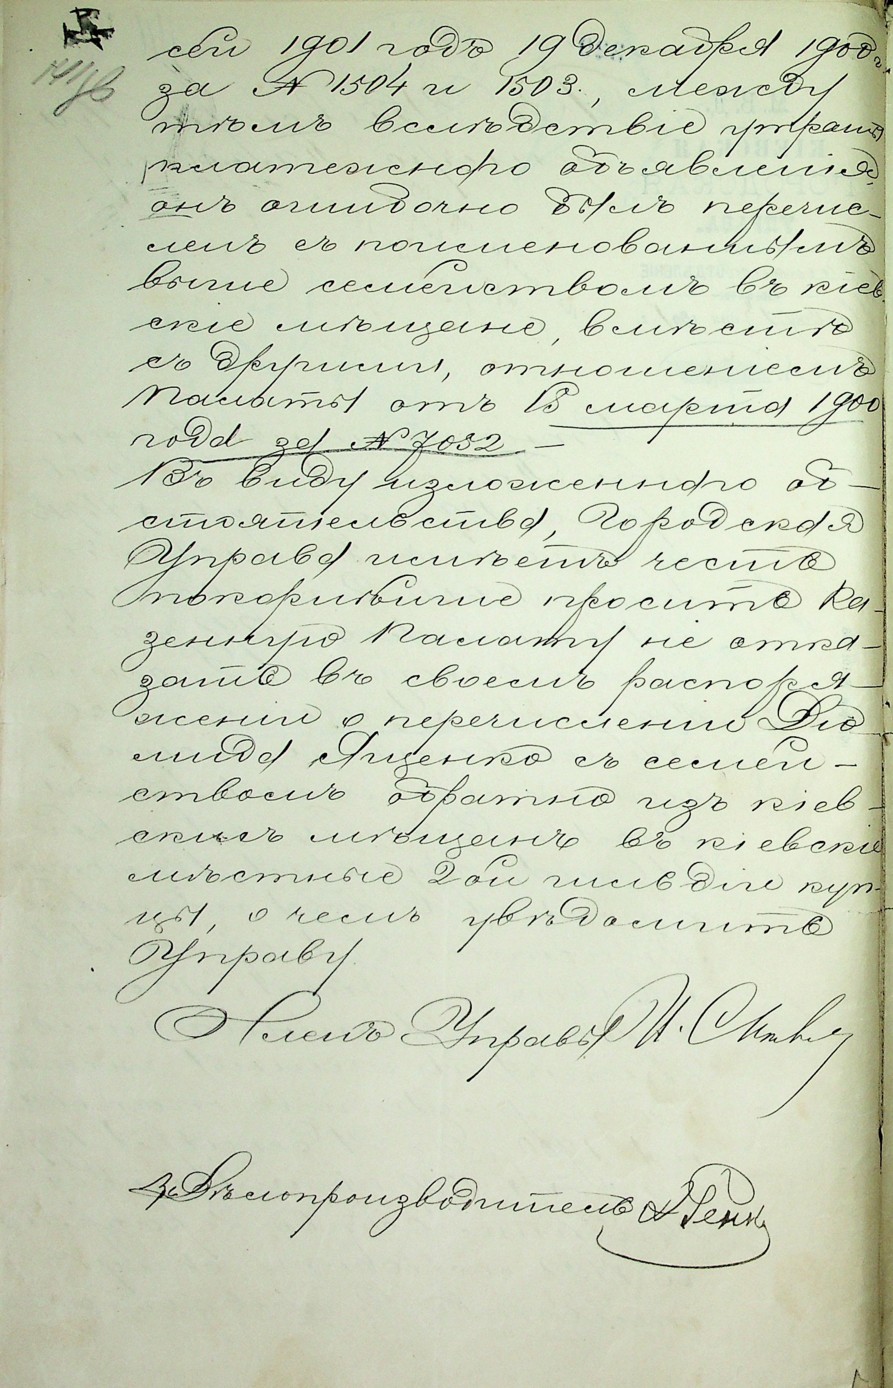 сей 1901 годъ 19 декабря 1900 г.
за № 1504 и 1503., между
тѣмъ вслѣдствіе утраты
платежнаго объявленія,
онъ ошибочно былъ перечис-
ленъ съ поименованнымъ
выше семействомъ въ кіев
скіе мѣщане, вмѣстѣ
съ другими, отношеніемъ
Палаты отъ 15 марта 1900
года за № 7032 —
Въ виду изложеннаго об-
стоятельства, Городская
Управа имѣетъ честь
покорнѣйше просить Ка-
зенную Палату не отка-
зать въ своемъ распоря-
женіи о перечисленіи Діо
мида Яценко съ семей-
ствомъ обратно изъ кіев-
скихъ мѣщанъ въ кіевскіе
мѣстные 2ой гильдіи куп-
цы, о чемъ увѣдомить
Управу
Членъ Управы И.
За Дѣлопроизводитель